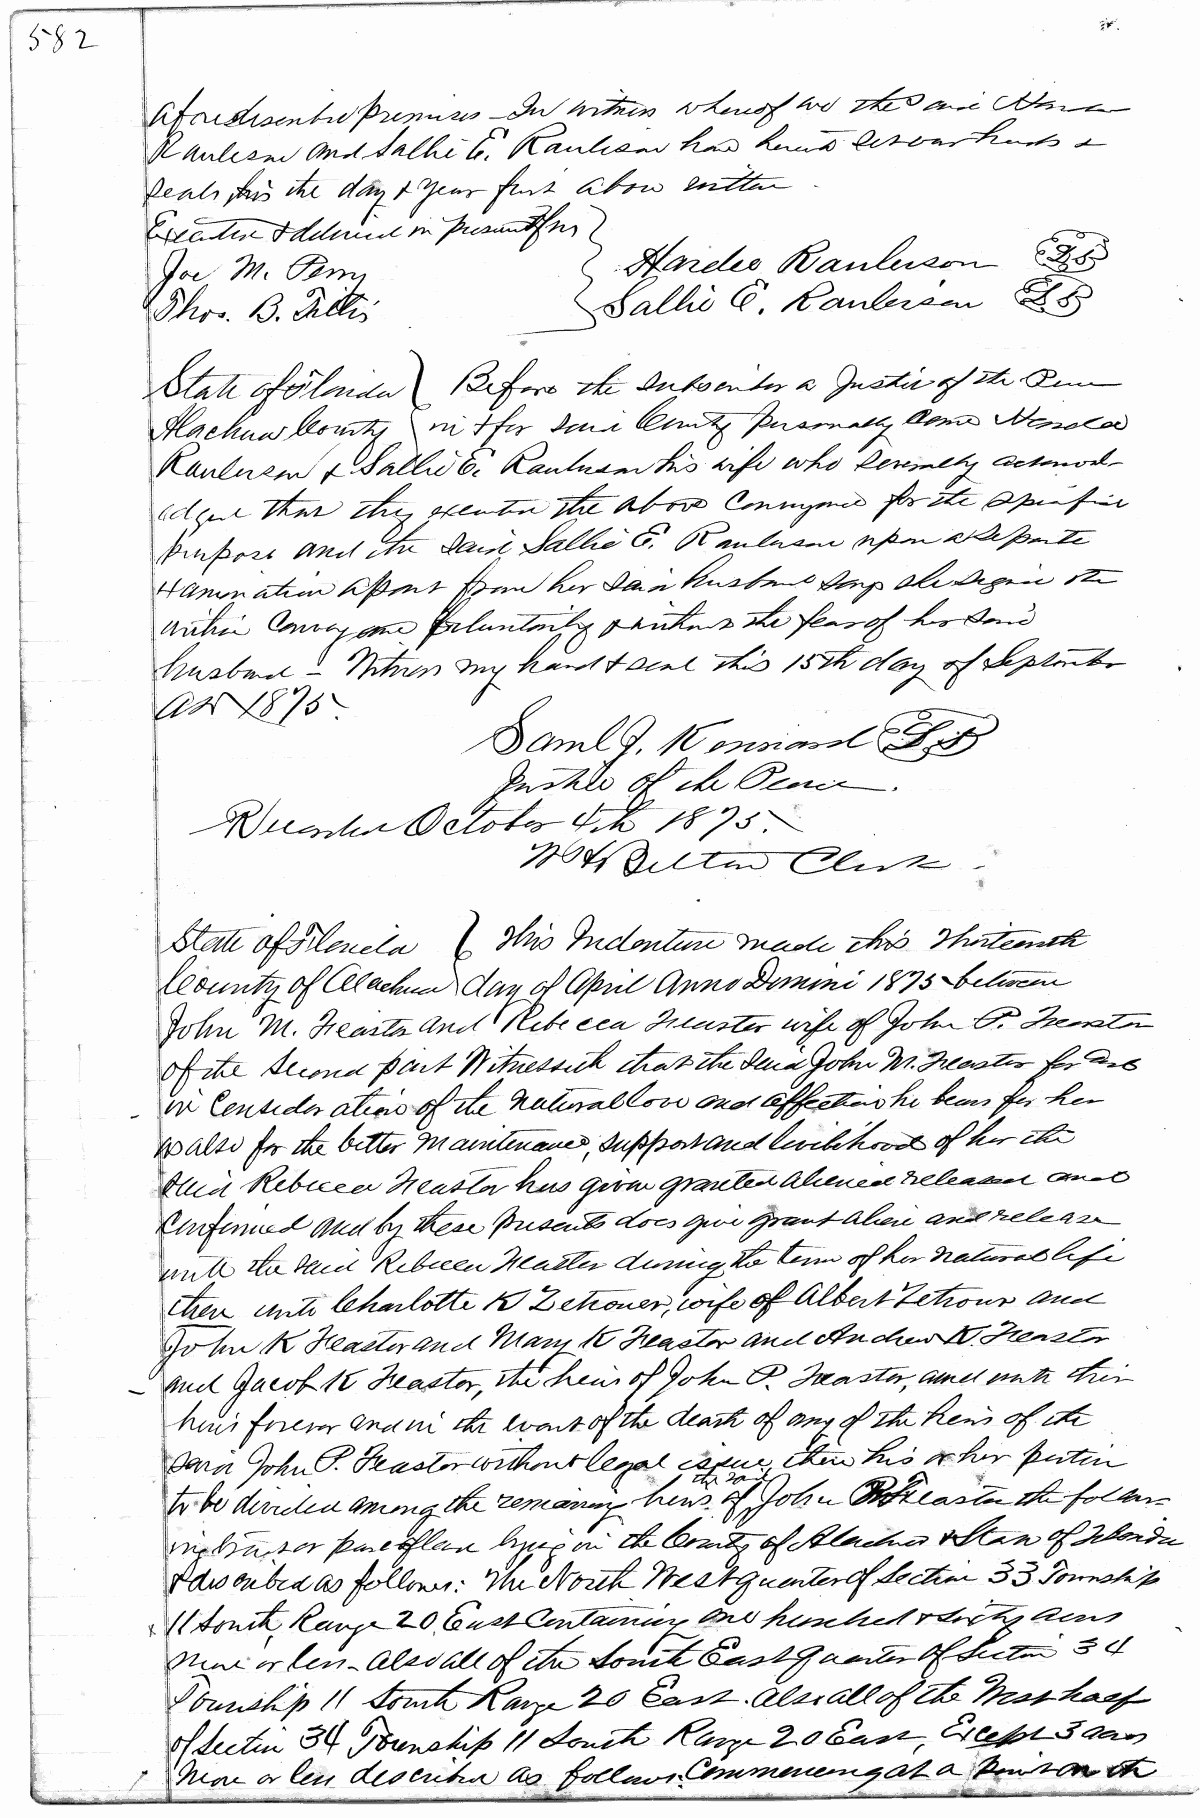 582
aforedescribed premises - In witness whereof we the said
Raulerson and Sallie E. Raulerson have hereto set our hands &
seals this the day & year first above written
Executed & delivered in presence of us
Joe M. Perry
Thos. B. Fillis
Hardee Raulerson LS
Sallie E. Raulerson LS
State of Florida Before the subscriber a Justice of the Peace
Alachua County in & for said County personally came
Raulerson & Sallie E. Raulerson his wife who severally acknowl-
edged that they executed the above Conveyance for the specified
purpose and the said Sallie E. Raulerson upon a separate
examination apart from her said husband says she signed the
within Conveyance voluntarily & without the fear of her said
husband - Witness my hand & seal this 15th day of September
AD 1875.
Saml J. Kennard LS
Justice of the Peace.
Recorded October 4th 1875.
Belton Clerk
State of Florida This Indenture made this thirteenth
County of Alachua day of April Anno Domini 1875 between
John M. Feaster and Rebecca Feaster wife of John P. Feaster
of the second part Witnesseth that the said John M. Feaster for and
in Consideration of the natural love and affection he bears for her
as also for the better maintenance, support and livelihood of her the
said Rebecca Feaster has given granted aliened released and
Confirmed and by these presents does give grant alien and release
unto the said Rebecca Feaster during the term of her natural life
then unto Charlotte K Zetrouer, wife of Albert Zetrour and
John K Feaster and Mary K Feaster and Andrew K. Feaster
and Jacob K Feaster, the heirs of John P. Feaster, and unto their
heirs forever and in the event of the death of any of the heirs of the
said John P. Feaster without legal issue, then his or her portion
to be divided among the remaining heirs of the said John P. Feaster the follow-
ing tract or parcel of land lying in the County of Alachua & State of Florida
& described as follows: The North West quarter of Section 33 Township
11 South, Range 20, East Containing one hundred & sixty acres
more or less - also all of the South East quarter of Section 34
Township 11 South Range 20 East. also all of the West half
of Section 34 Township 11 South Range 20 East, Except 3 acres
more or less described as follows: Commencing at a point on the